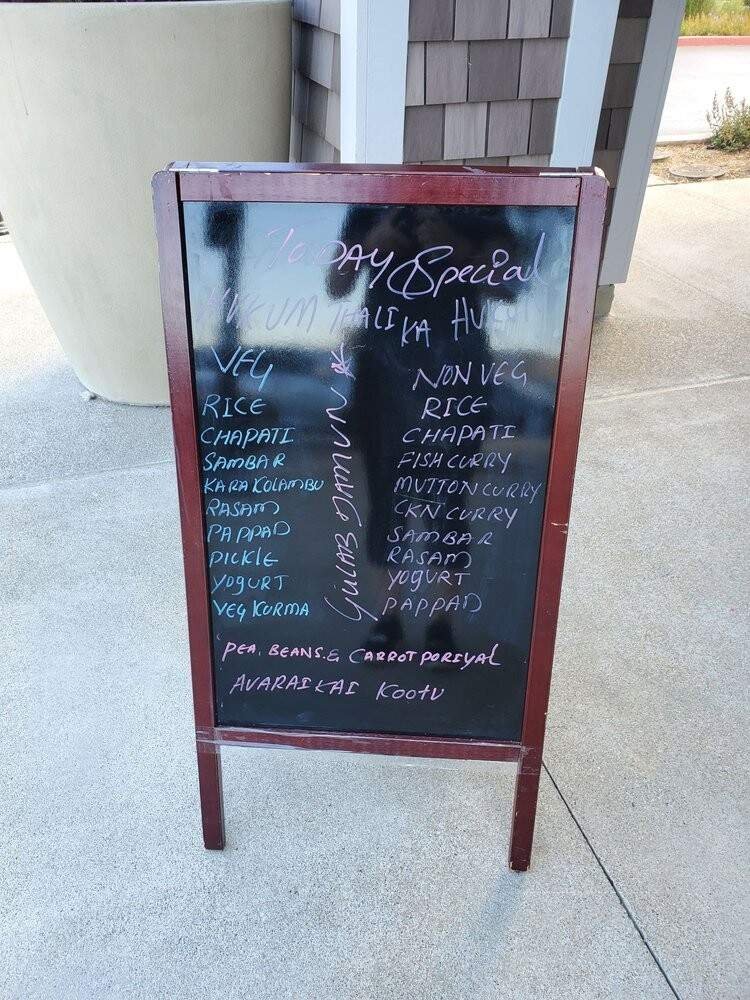 TODAY Special
HUKUM THALI KA HUKUM
VEG
RICE
CHAPATI
SAMBAR
KARA KOLAMBU
RASAM
PAPPAD
PICKLE
YOGURT
VEG KURMA
GULAB JAMUN *
NON VEG
RICE
CHAPATI
FISH CURRY
MUTTON CURRY
CKN CURRY
SAMBAR
RASAM
YOGURT
PAPPAD
PEA, BEANS & CARROT PORIYAL
AVARAIKAI KOOTU